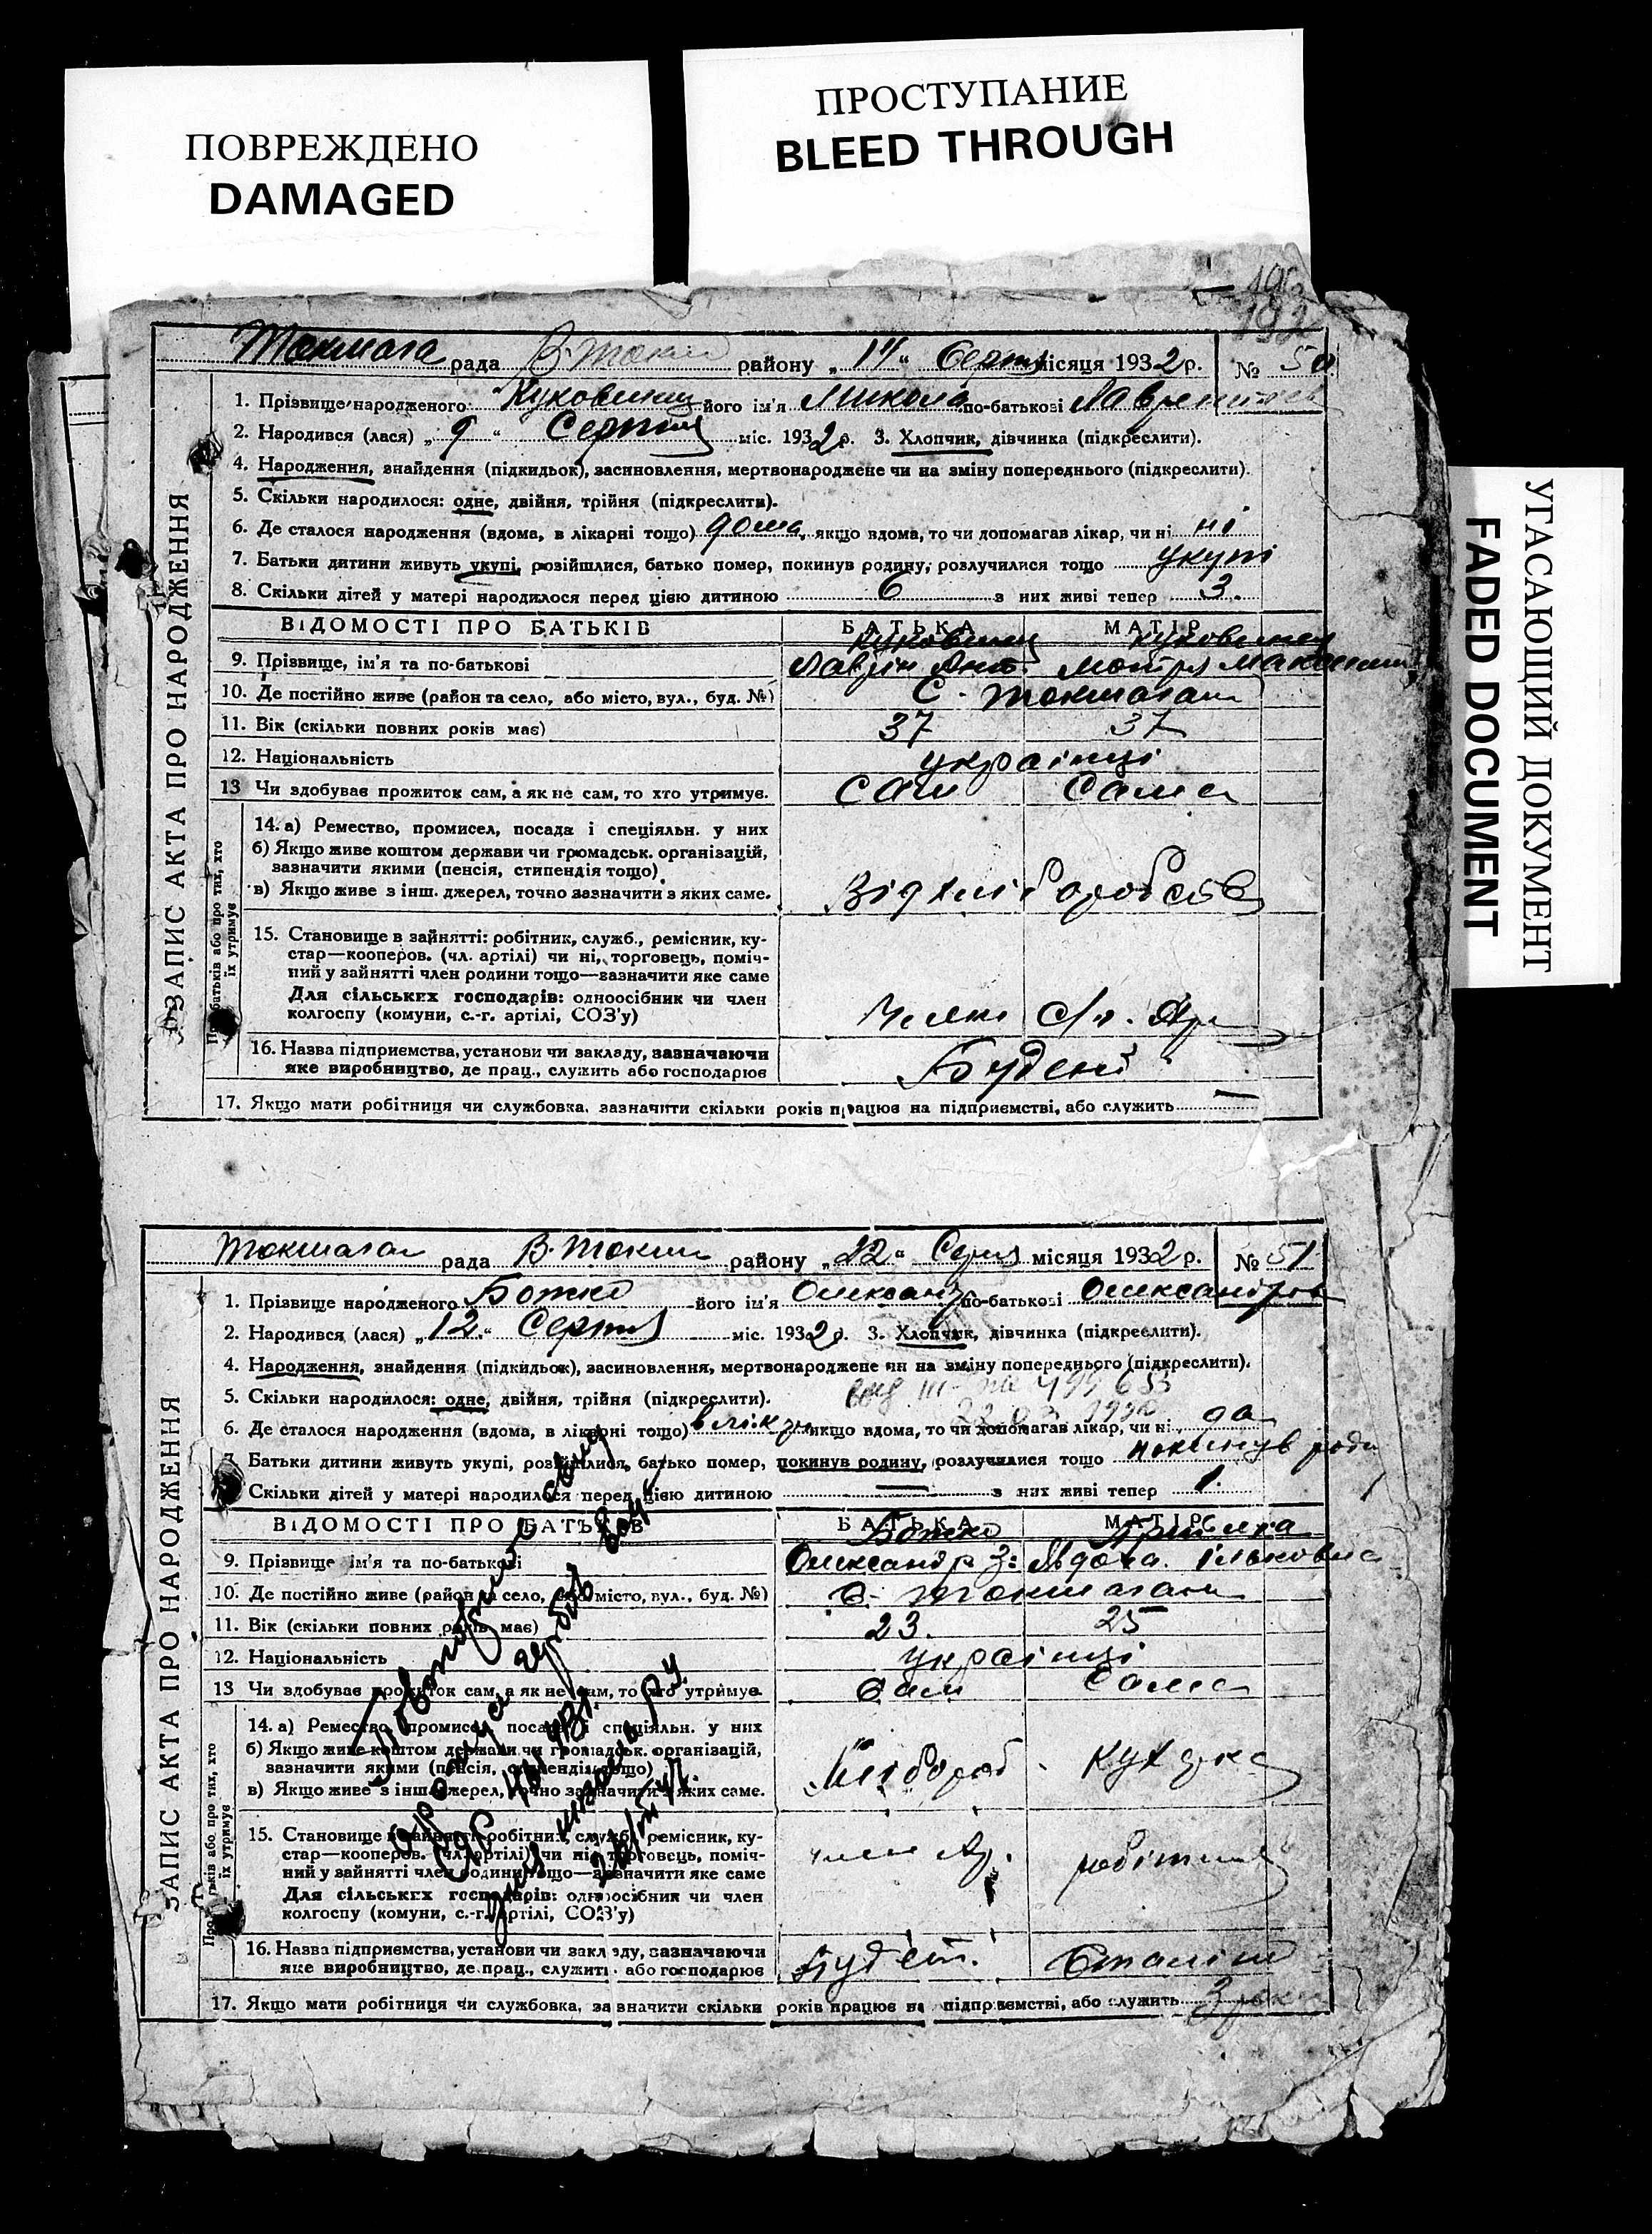 ПОВРЕЖДЕНО
DAMAGED
ПРОСТУПАНИЕ
BLEED THROUGH
УГАСАЮЩИЙ ДОКУМЕНТ
FADED DOCUMENT
192
ЗАПИС АКТА ПРО НАРОДЖЕННЯ
рада В-Токм району „14“ Серпн місяця 1932 р. № 50
1. Прізвище народженого його ім'я Микола по-батькові
2. Народився (лася) „9“ Серпня міс. 1932 р. 3. Хлопчик, дівчинка (підкреслити).
4. Народження, знайдення (підкидьок), засиновлення, мертвонароджене чи на зміну попереднього (підкреслити).
5. Скільки народилося: одне, двійня, трійня (підкреслити).
6. Де сталося народження (вдома, в лікарні тощо) дома, якщо вдома, то чи допомагав лікар, чи ні ні
7. Батьки дитини живуть укупі, розійшлися, батько помер, покинув родину, розлучилися тощо укупі
8. Скільки дітей у матері народилося перед цією дитиною 6 з них живі тепер 3.
ВІДОМОСТІ ПРО БАТЬКІВ БАТЬКА МАТІР
9. Прізвище, ім'я та по-батькові
10. Де постійно живе (район та село, або місто, вул., буд. №) С.
11. Вік (скільки повних років має) 37 37
12. Національність українці
13 Чи здобуває прожиток сам, а як не сам, то хто утримує. Сам Сама
Про батьків або про тих, хто їх утримує
14. а) Ремество, промисел, посада і спеціяльн. у них
б) Якщо живе коштом держави чи громадськ. організацій,
зазначити якими (пенсія, стипендія тощо)
в) Якщо живе з інш. джерел, точно зазначити з яких саме.
Від хліборобств
15. Становище в зайнятті: робітник, служб., ремісник, ку-
стар—кооперов. (чл. артілі) чи ні, торговець, поміч-
ний у зайнятті член родини тощо—зазначити яке саме
Для сільських господарів: одноосібник чи член
колгоспу (комуни, с.-г. артілі, СОЗ'у)
16. Назва підприємства, установи чи закладу, зазначаючи
яке виробництво, де прац., служить або господарює
17. Якщо мати робітниця чи службовка, зазначити скільки років працює на підприємстві, або служить —
ЗАПИС АКТА ПРО НАРОДЖЕННЯ
рада В-Токм району „22“ Серпн місяця 1932 р. № 51
1. Прізвище народженого Божко його ім'я Олександр по-батькові Олександров
2. Народився (лася) „12“ Серпня міс. 1932 р. 3. Хлопчик, дівчинка (підкреслити).
4. Народження, знайдення (підкидьок), засиновлення, мертвонароджене чи на зміну попереднього (підкреслити).
5. Скільки народилося: одне, двійня, трійня (підкреслити).
6. Де сталося народження (вдома, в лікарні тощо) в лік якщо вдома, то чи допомагав лікар, чи ні да
7. Батьки дитини живуть укупі, розійшлися, батько помер, покинув родину, розлучилися тощо покинув роди
Скільки дітей у матері народилося перед цією дитиною — з них живі тепер 1.
ВІДОМОСТІ ПРО БАТЬКІВ БАТЬКА МАТІР
Божко
9. Прізвище ім'я та по-батькові Олександр
10. Де постійно живе (район та село, або місто, вул., буд. №) С.
11. Вік (скільки повних років має) 23. 25
12. Національність українці
13 Чи здобуває прожиток сам, а як не сам, то хто утримує. Сам Сама
Про батьків або про тих, хто їх утримує
14. а) Ремество, промисел, посада і спеціяльн. у них
б) Якщо живе коштом держави чи громадськ. організацій,
зазначити якими (пенсія, стипендія тощо)
в) Якщо живе з інш. джерел, точно зазначити з яких саме.
Хлібороб. Кухарка
15. Становище в зайнятті: робітник, служб., ремісник, ку-
стар—кооперов. (чл. артілі) чи ні, торговець, поміч-
ний у зайнятті член родини тощо—зазначити яке саме
Для сільських господарів: одноосібник чи член
колгоспу (комуни, с.-г. артілі, СОЗ'у)
член Ар. робітниця
16. Назва підприємства, установи чи закладу, зазначаючи
яке виробництво, де прац., служить або господарює
17. Якщо мати робітниця чи службовка, зазначити скільки років працює на підприємстві, або служить 3 роки